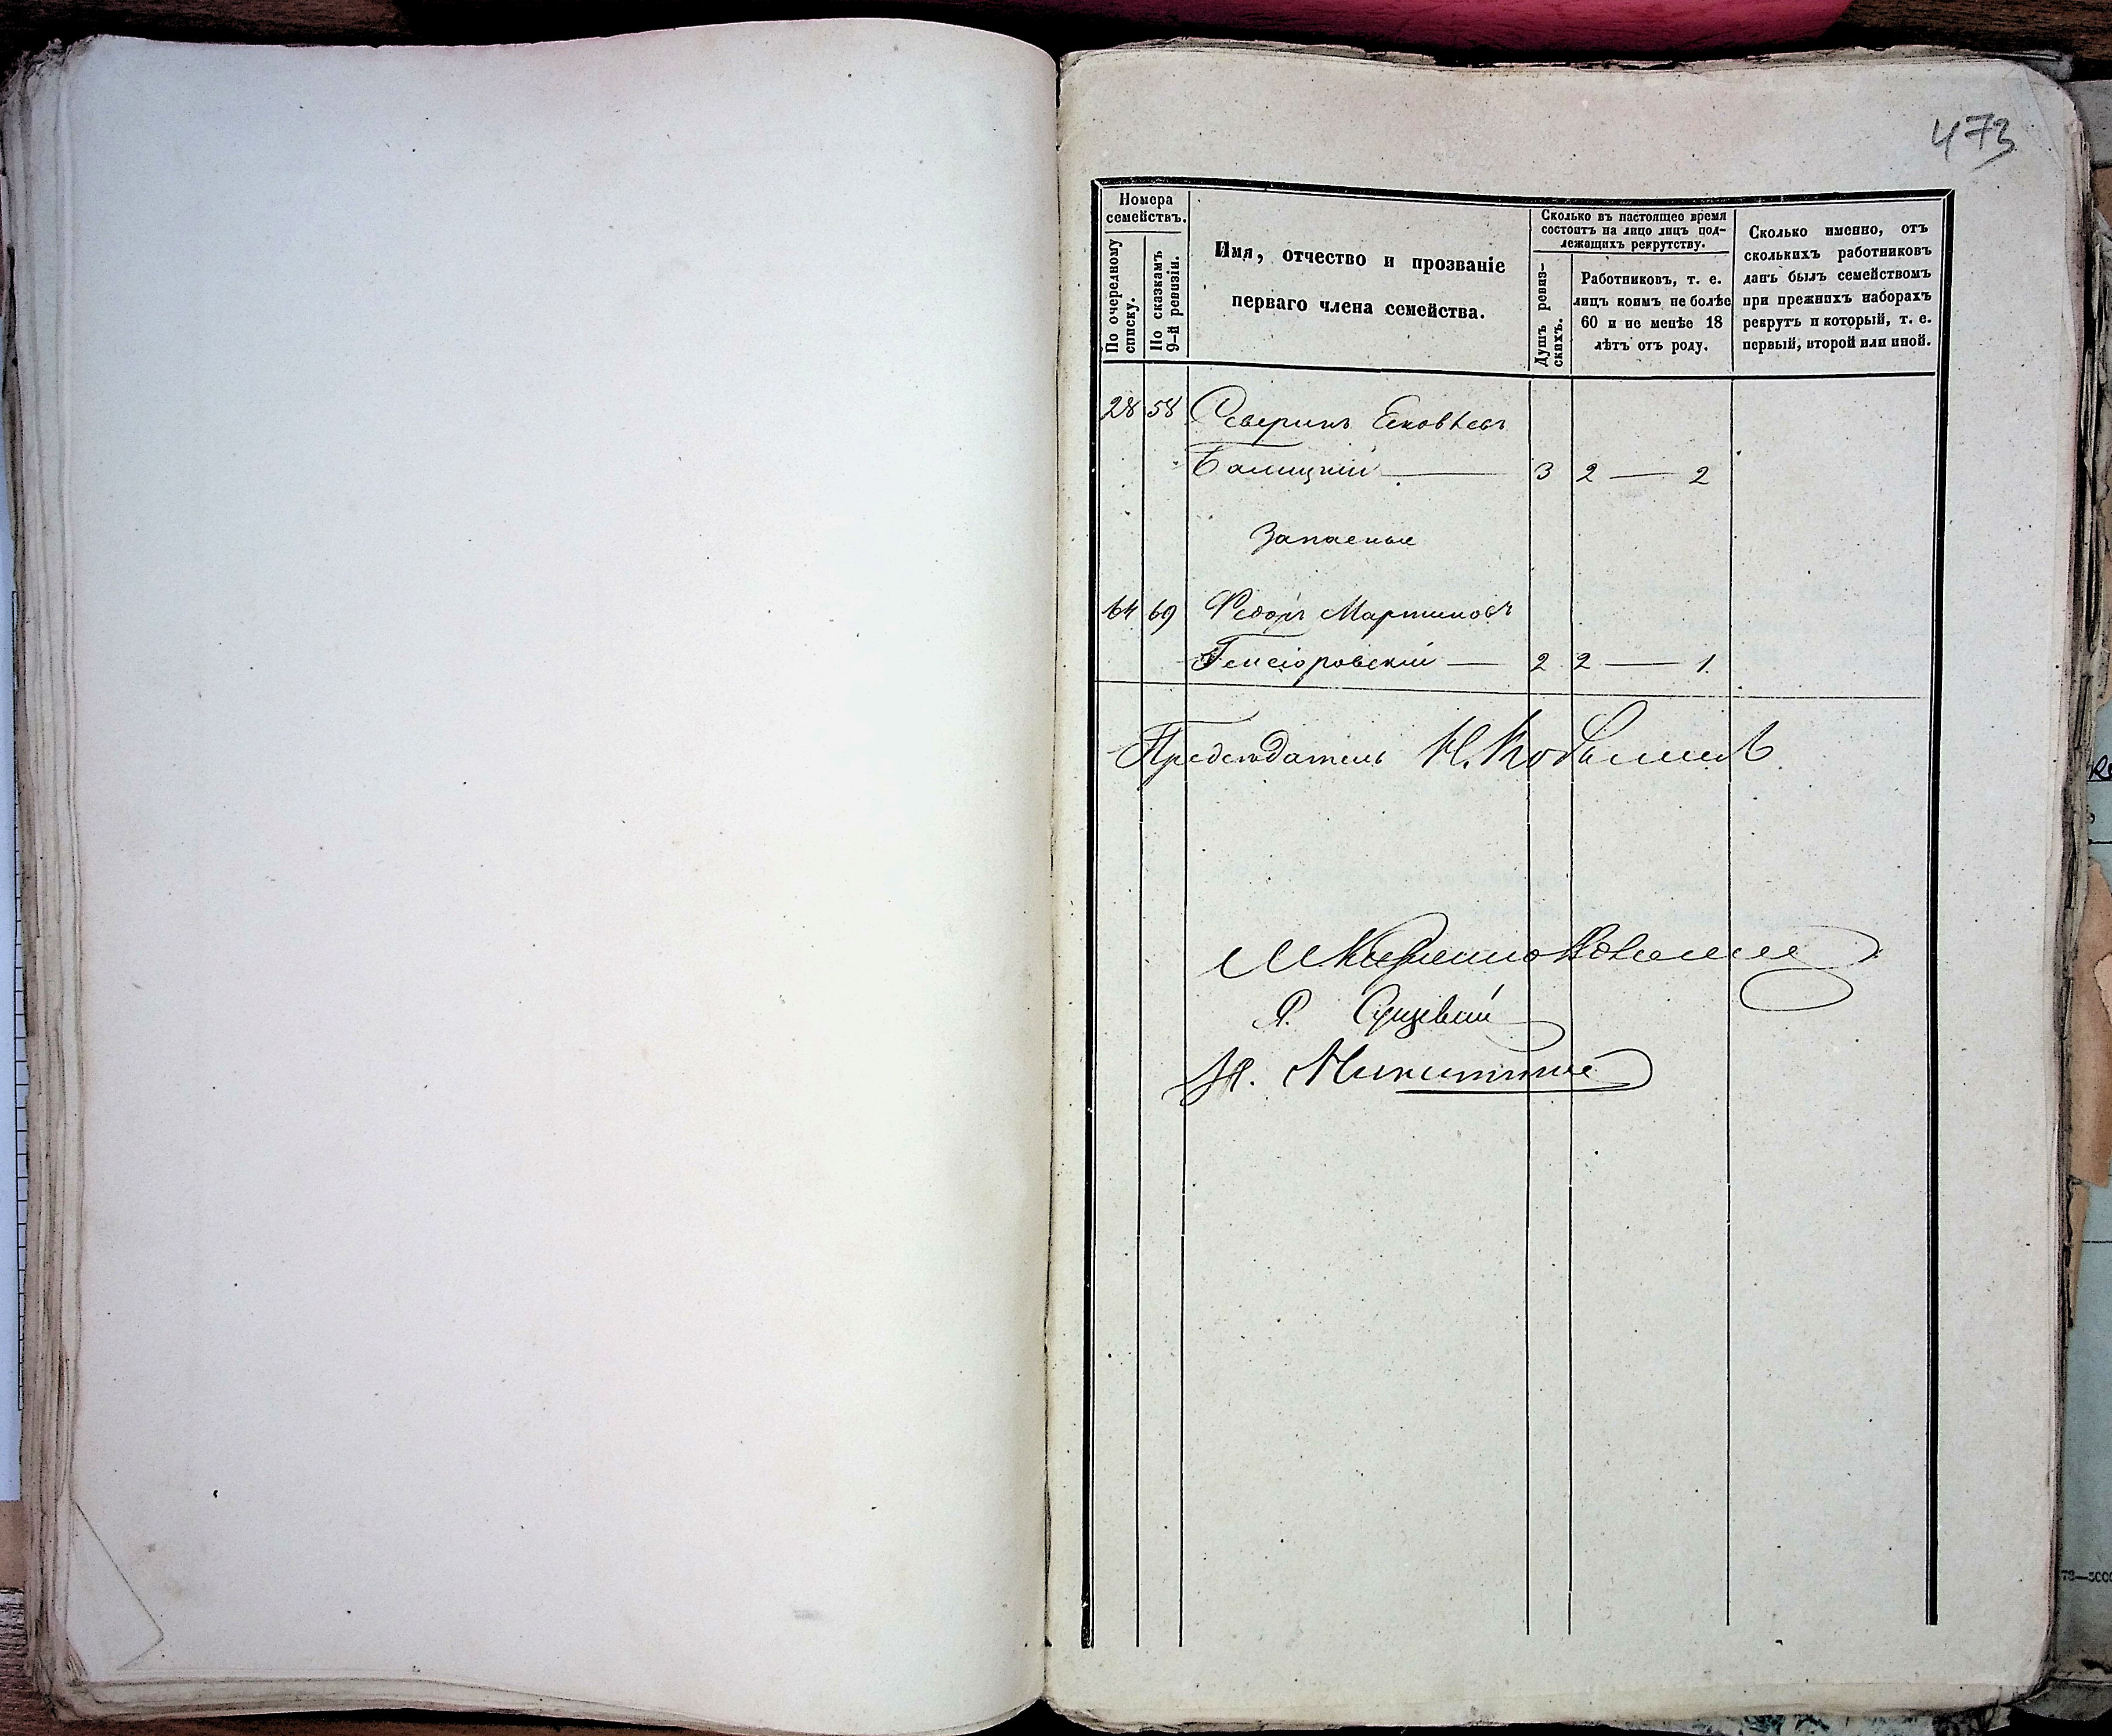 473
Номера
семействъ.
По очередному
списку.
По сказкамъ
9-й ревизіи.
Имя, отчество и прозваніе
перваго члена семейства.
Сколько въ настоящее время
состоитъ на лицо лицъ под-
лежащихъ рекрутству.
Душъ ревиз-
скихъ.
Работниковъ, т. е.
лицъ коимъ не болѣе
60 и не менѣе 18
лѣтъ отъ роду.
Сколько именно, отъ
сколькихъ работниковъ
данъ былъ семействомъ
при прежнихъ наборахъ
рекрутъ и который, т. е.
первый, второй или иной.
28 58 Северинъ
Балицкій — 3 2 — 2
Запасные
64 69 Федоръ Мартиновъ
Генсіоровскій — 2 2 — 1
Предсѣдатель Н.